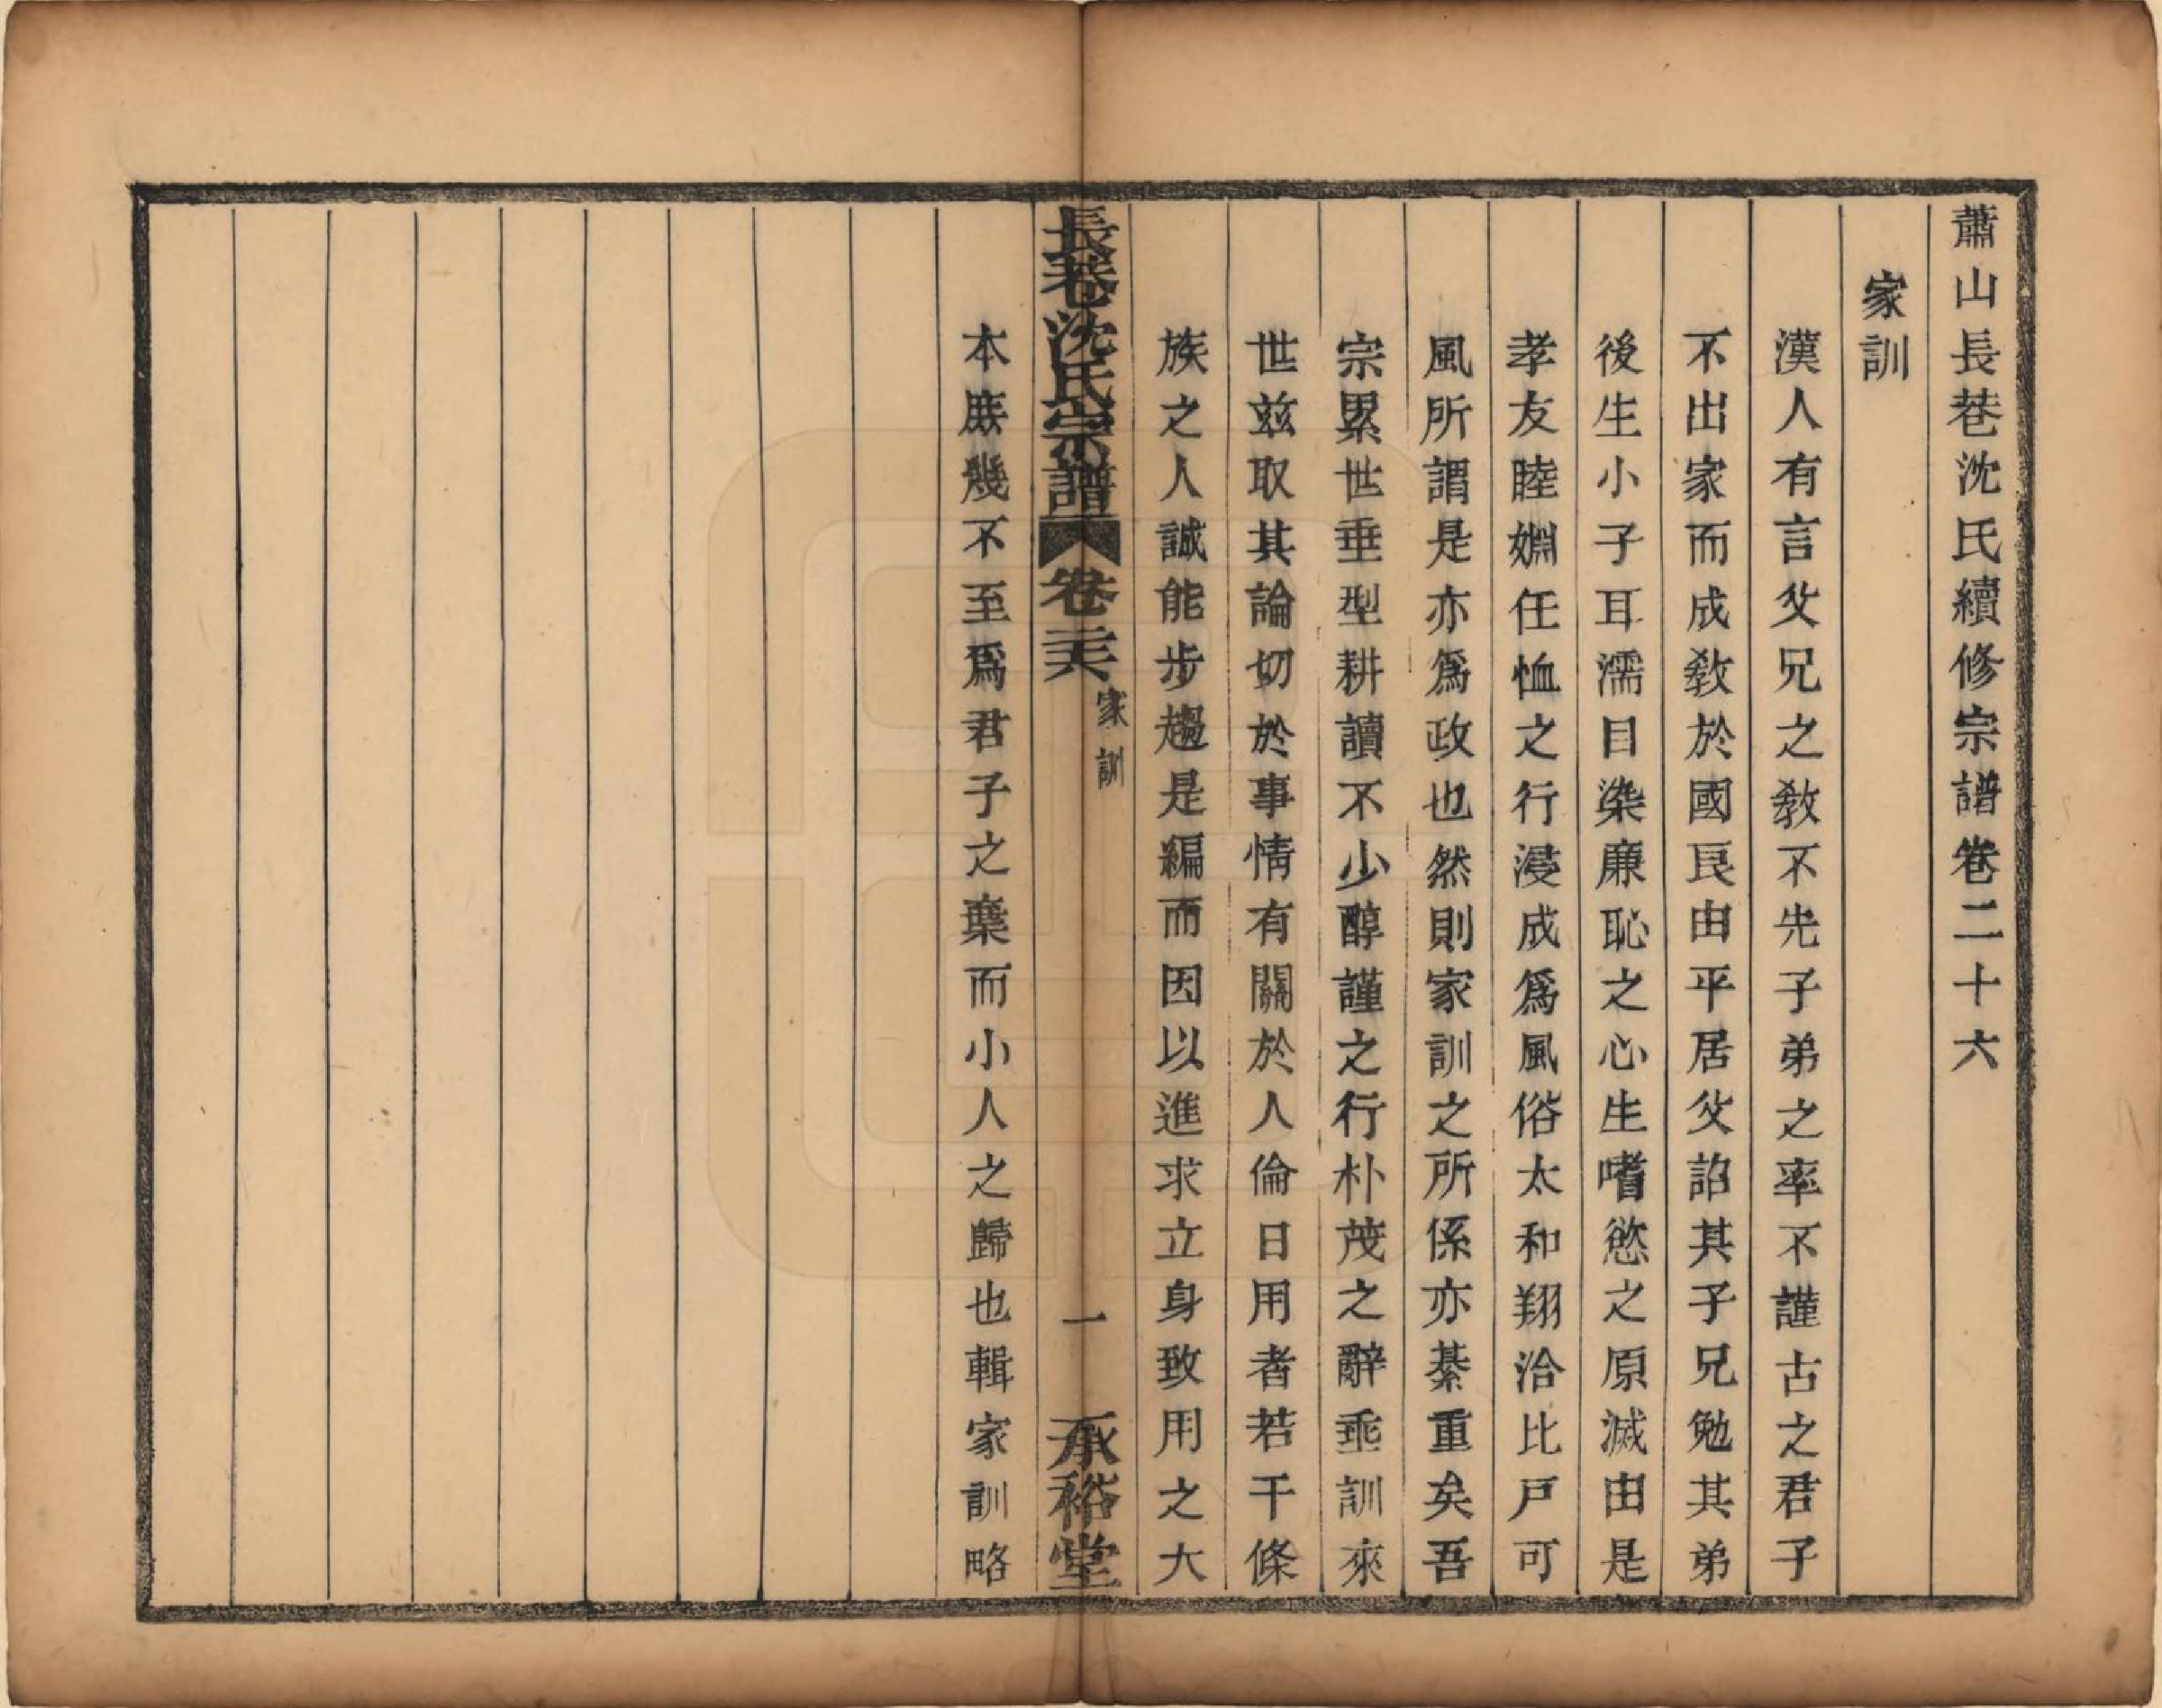 蕭山長巷沈氏續修宗譜卷二十六
家訓
漢人有言父兄之敎不先子弟之率不謹古之君子
不出家而成敎於國良由平居父詔其子兄勉其弟
後生小子耳濡目染廉恥之心生嗜慾之原滅由是
孝友睦婣任恤之行浸成爲風俗太和翔洽比戸可
風所謂是亦爲政也然則家訓之所係亦綦重矣吾
宗累世垂型耕讀不少醇謹之行朴茂之辭垂訓來
世玆取其論切於事情有關於人倫日用者若干條
族之人誠能步趨是編而因以進求立身致用之大
長巷沈氏宗譜 卷二十六 家訓 一 承裕堂
本庶幾不至爲君子之棄而小人之歸也輯家訓略